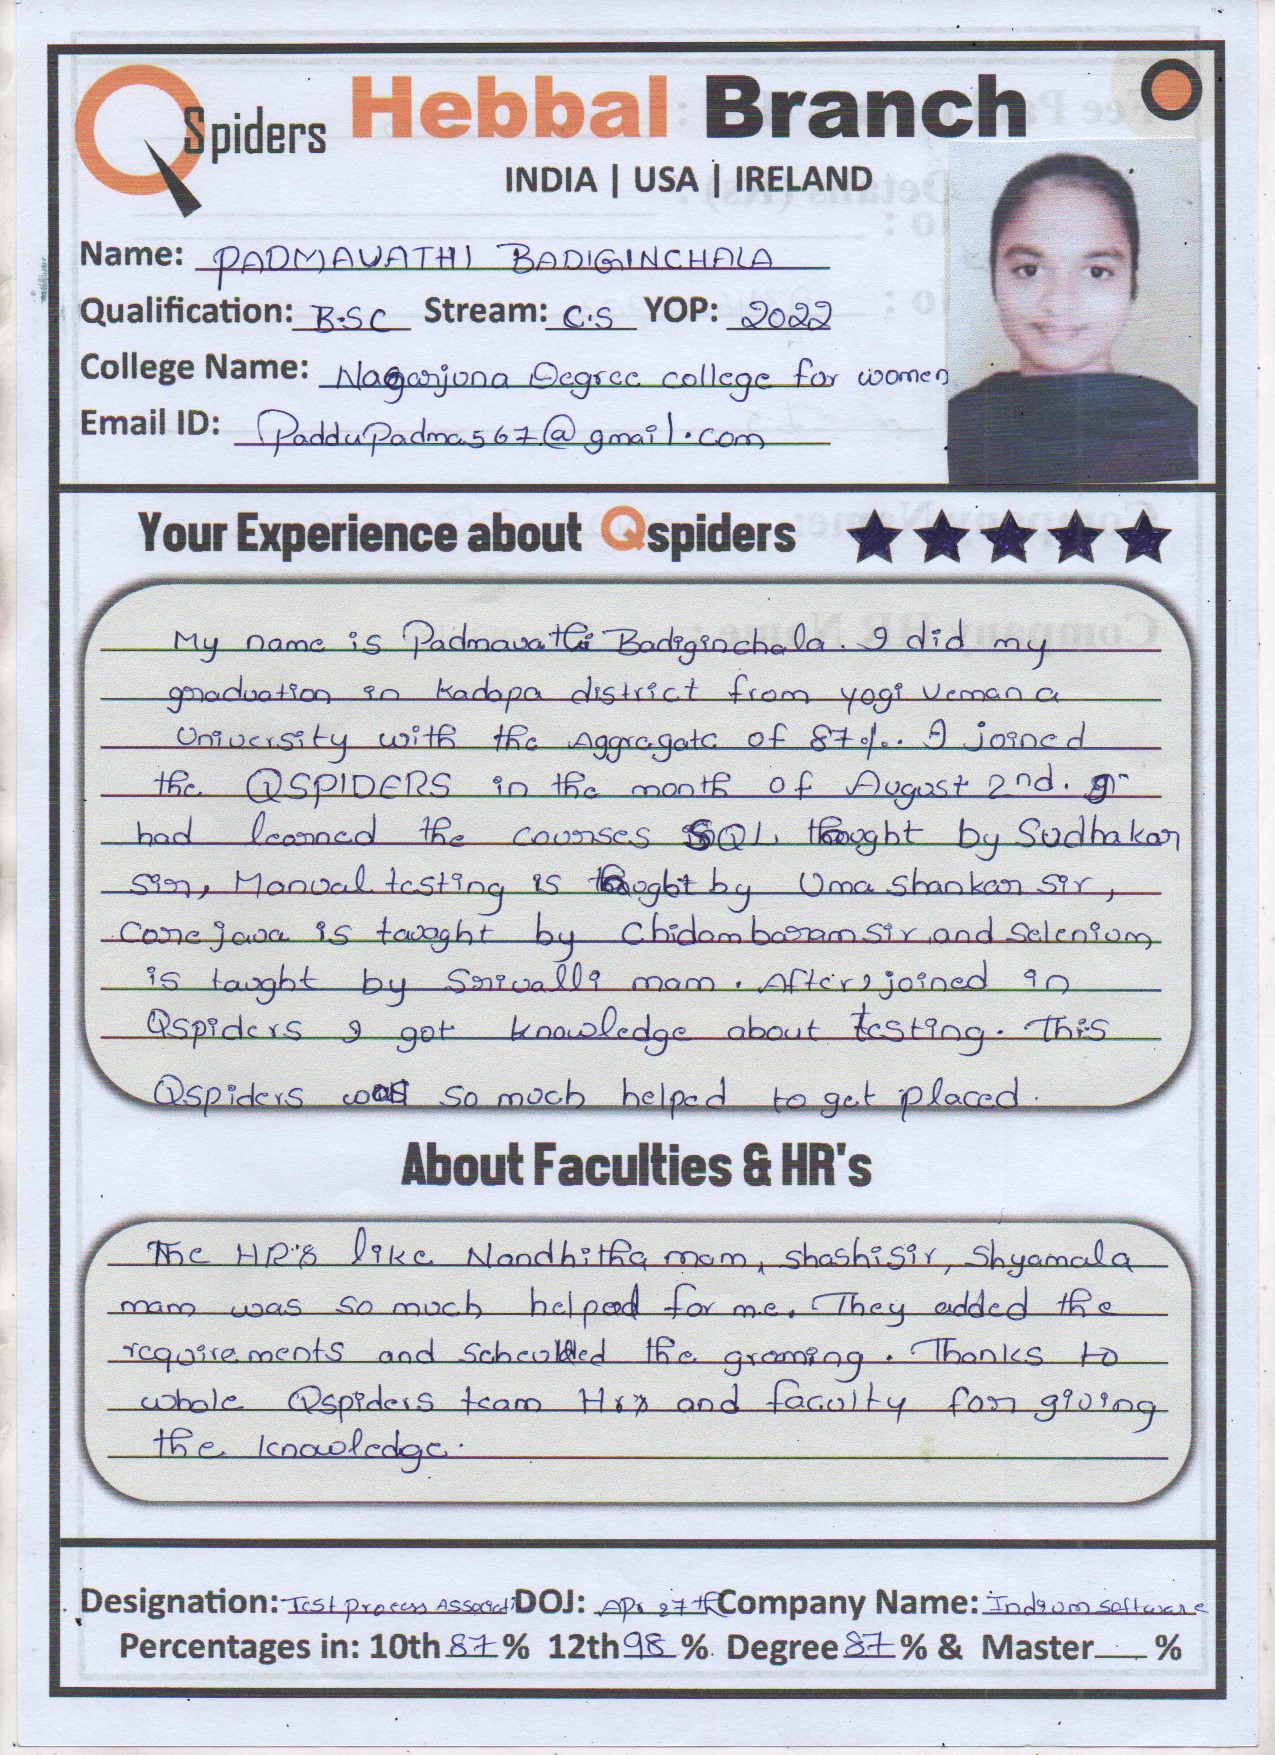 Qspiders Hebbal Branch
INDIA | USA | IRELAND
Name: PADMAVATHI BADIGINCHALA
Qualification: B.SC Stream: C.S YOP: 2022
College Name: Nagarjuna Degree college for women
Email ID: Paddupadma567@gmail.com
Your Experience about Qspiders
My name is Padmavathi Badiginchala. I did my
graduation in kadapa district from yogi vemana
University with the Aggregate of 87%. I joined
the QSPIDERS in the month of August 2nd. I
had learned the courses SQL thought by Sudhakar
sir, Manual testing is taught by Uma shankar sir,
Core java is tavaght by Chidambaram sir and selenium
is taught by Srivalli mam. After joined in
Qspiders I got knowledge about testing. This
Qspiders was so much helped to get placed.
About Faculties & HR's
The HR's like Nandhitha mam, shashi sir, Shyamala
mam was so much helped for me. They added the
requirements and the groming. Thanks to
whole Qspiders team Hrs and faculty for giving
the knowledge.
Designation: Test process Associ DOJ: Apr 27th Company Name: Indium software
Percentages in: 10th 87 % 12th 98 % Degree 87 % & Master %